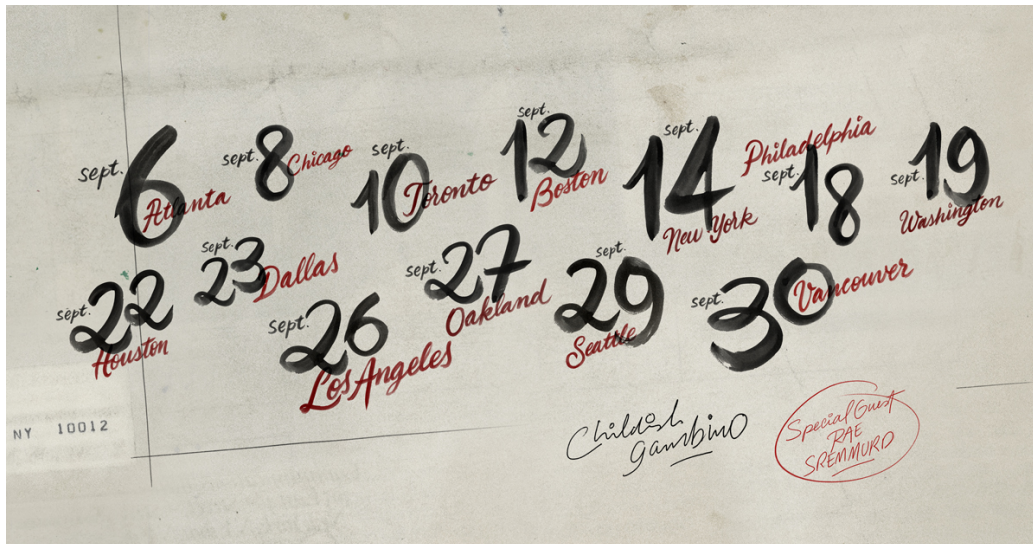 sept.
6
Atlanta
sept.
8
Chicago
sept.
10
Toronto
sept.
12
Boston
sept.
14
New York
Philadelphia
sept.
18
sept.
19
Washington
sept.
22
Houston
sept.
23
Dallas
sept.
26
Los Angeles
sept.
27
Oakland
sept.
29
Seattle
sept.
30
Vancouver
NY 10012
Childish
gambino
Special Guest
RAE
SREMMURD